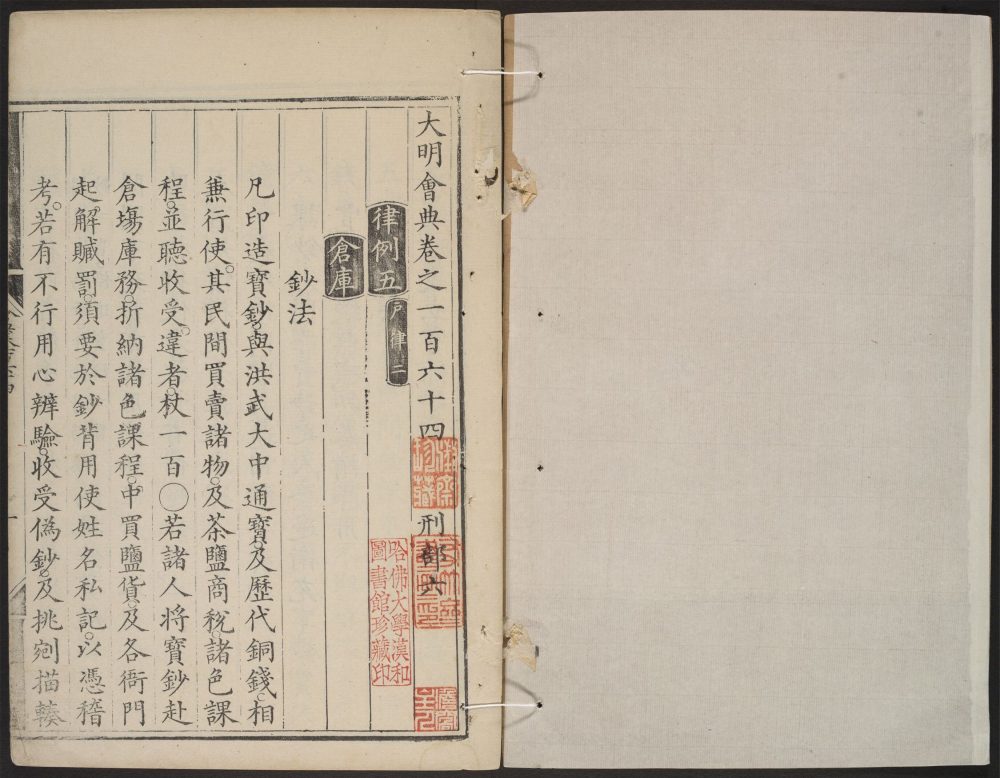 大明會典卷之一百六十四 刑部六
律例五 戶律二
倉庫
鈔法
凡印造寶鈔。與洪武大中通寶。及歷代銅錢。相
兼行使。其民間買賣諸物。及茶鹽商稅。諸色課
程。並聽收受。違者。杖一百〇若諸人將寶鈔赴
倉場庫務。折納諸色課程。中買鹽貨。及各衙門
起解贓罰。須要於鈔背用使姓名私記。以憑稽
考。若有不行用心辨驗。收受偽鈔。及挑剜描輳
哈佛大學漢和
圖書館珍藏印